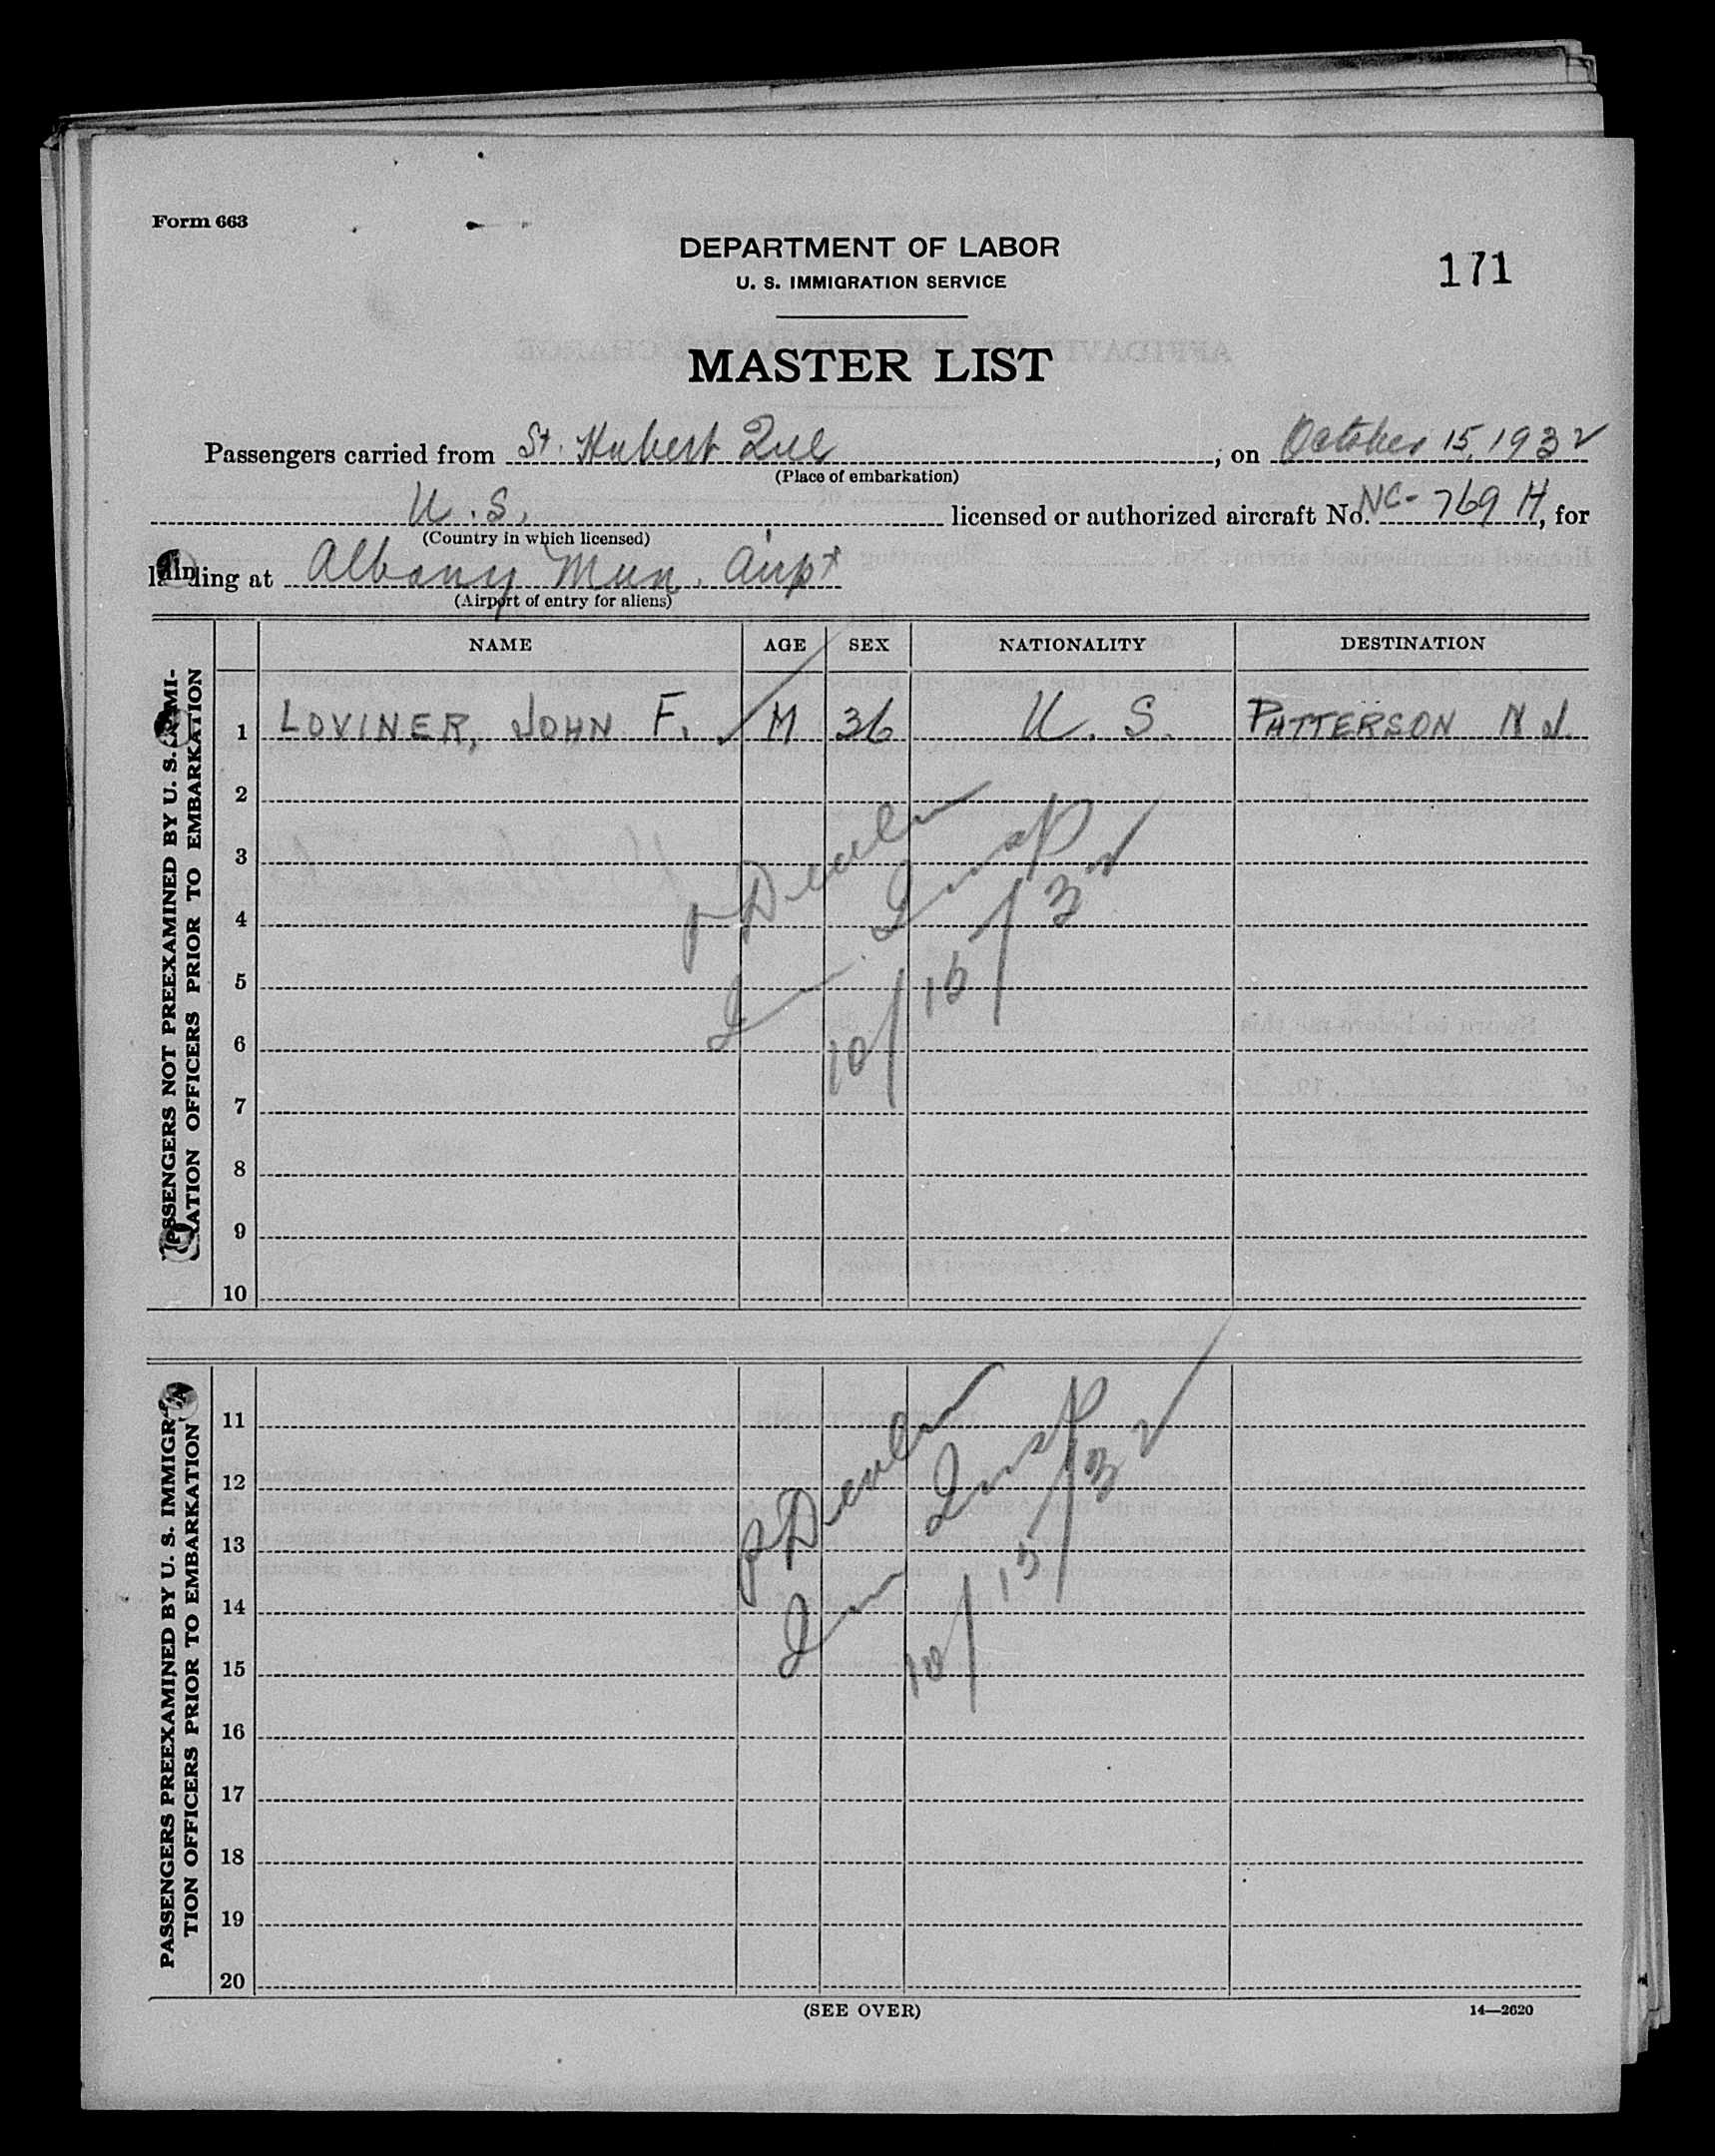 Form 663
DEPARTMENT OF LABOR
U. S. IMMIGRATION SERVICE
171
MASTER LIST
Passengers carried from St. Hubert Que ; on October 15, 1932
(Place of embarkation)
U. S. licensed or authorized aircraft No. NC- 769 H, for
(Country in which licensed)
landing at Albany Mun. Airpt
(Airport of entry for aliens)
NAME AGE SEX NATIONALITY DESTINATION
PASSENGERS NOT PREEXAMINED BY U. S. IMMI-
GRATION OFFICERS PRIOR TO EMBARKATION
1 LOVINER, JOHN F. M 36 U. S. PATTERSON N J.
2
3
4
5
6
7
8
9
10
P Devlin
Imm. Insp
10/15/32
PASSENGERS PREEXAMINED BY U. S. IMMIGRA-
TION OFFICERS PRIOR TO EMBARKATION
11
12
13
14
15
16
17
18
19
20
P Devlin
Imm Insp
10/15/32
(SEE OVER)
14—2620